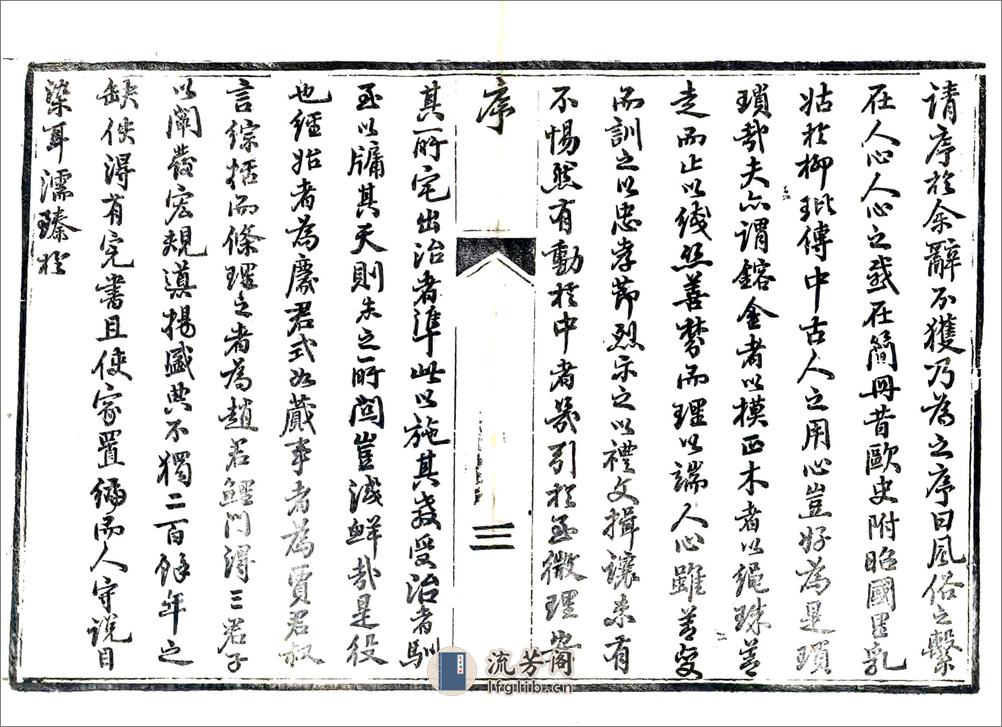 请序於余辭不獲乃為之序曰風俗之繫
在人心人心之感在簡冊昔歐史附昭國里乳
姑於柳玭傳中古人之用心豈好為是瑣
瑣哉夫亦謂鎔金者以模正木者以繩珠善
走而止以綫丝善棼而理以端人心雖善變
而訓之以忠孝節烈示之以禮文揖讓未有
不惕然有動於中者哉引於至微理
序
三
其所宅出治者準此以施其教受治者馴
至以牖其天則朱之所関豈淺鮮哉是役
也經始者為慶君式如蕆事者為賈君叔
言綜括而條理之者為趙君鯉門得三君子
以闡發宏規道揚盛典不獨二百餘年之
缺使得有完書且使家置編而人守說目
染耳濡臻於
流芳閣
lfglib.cn